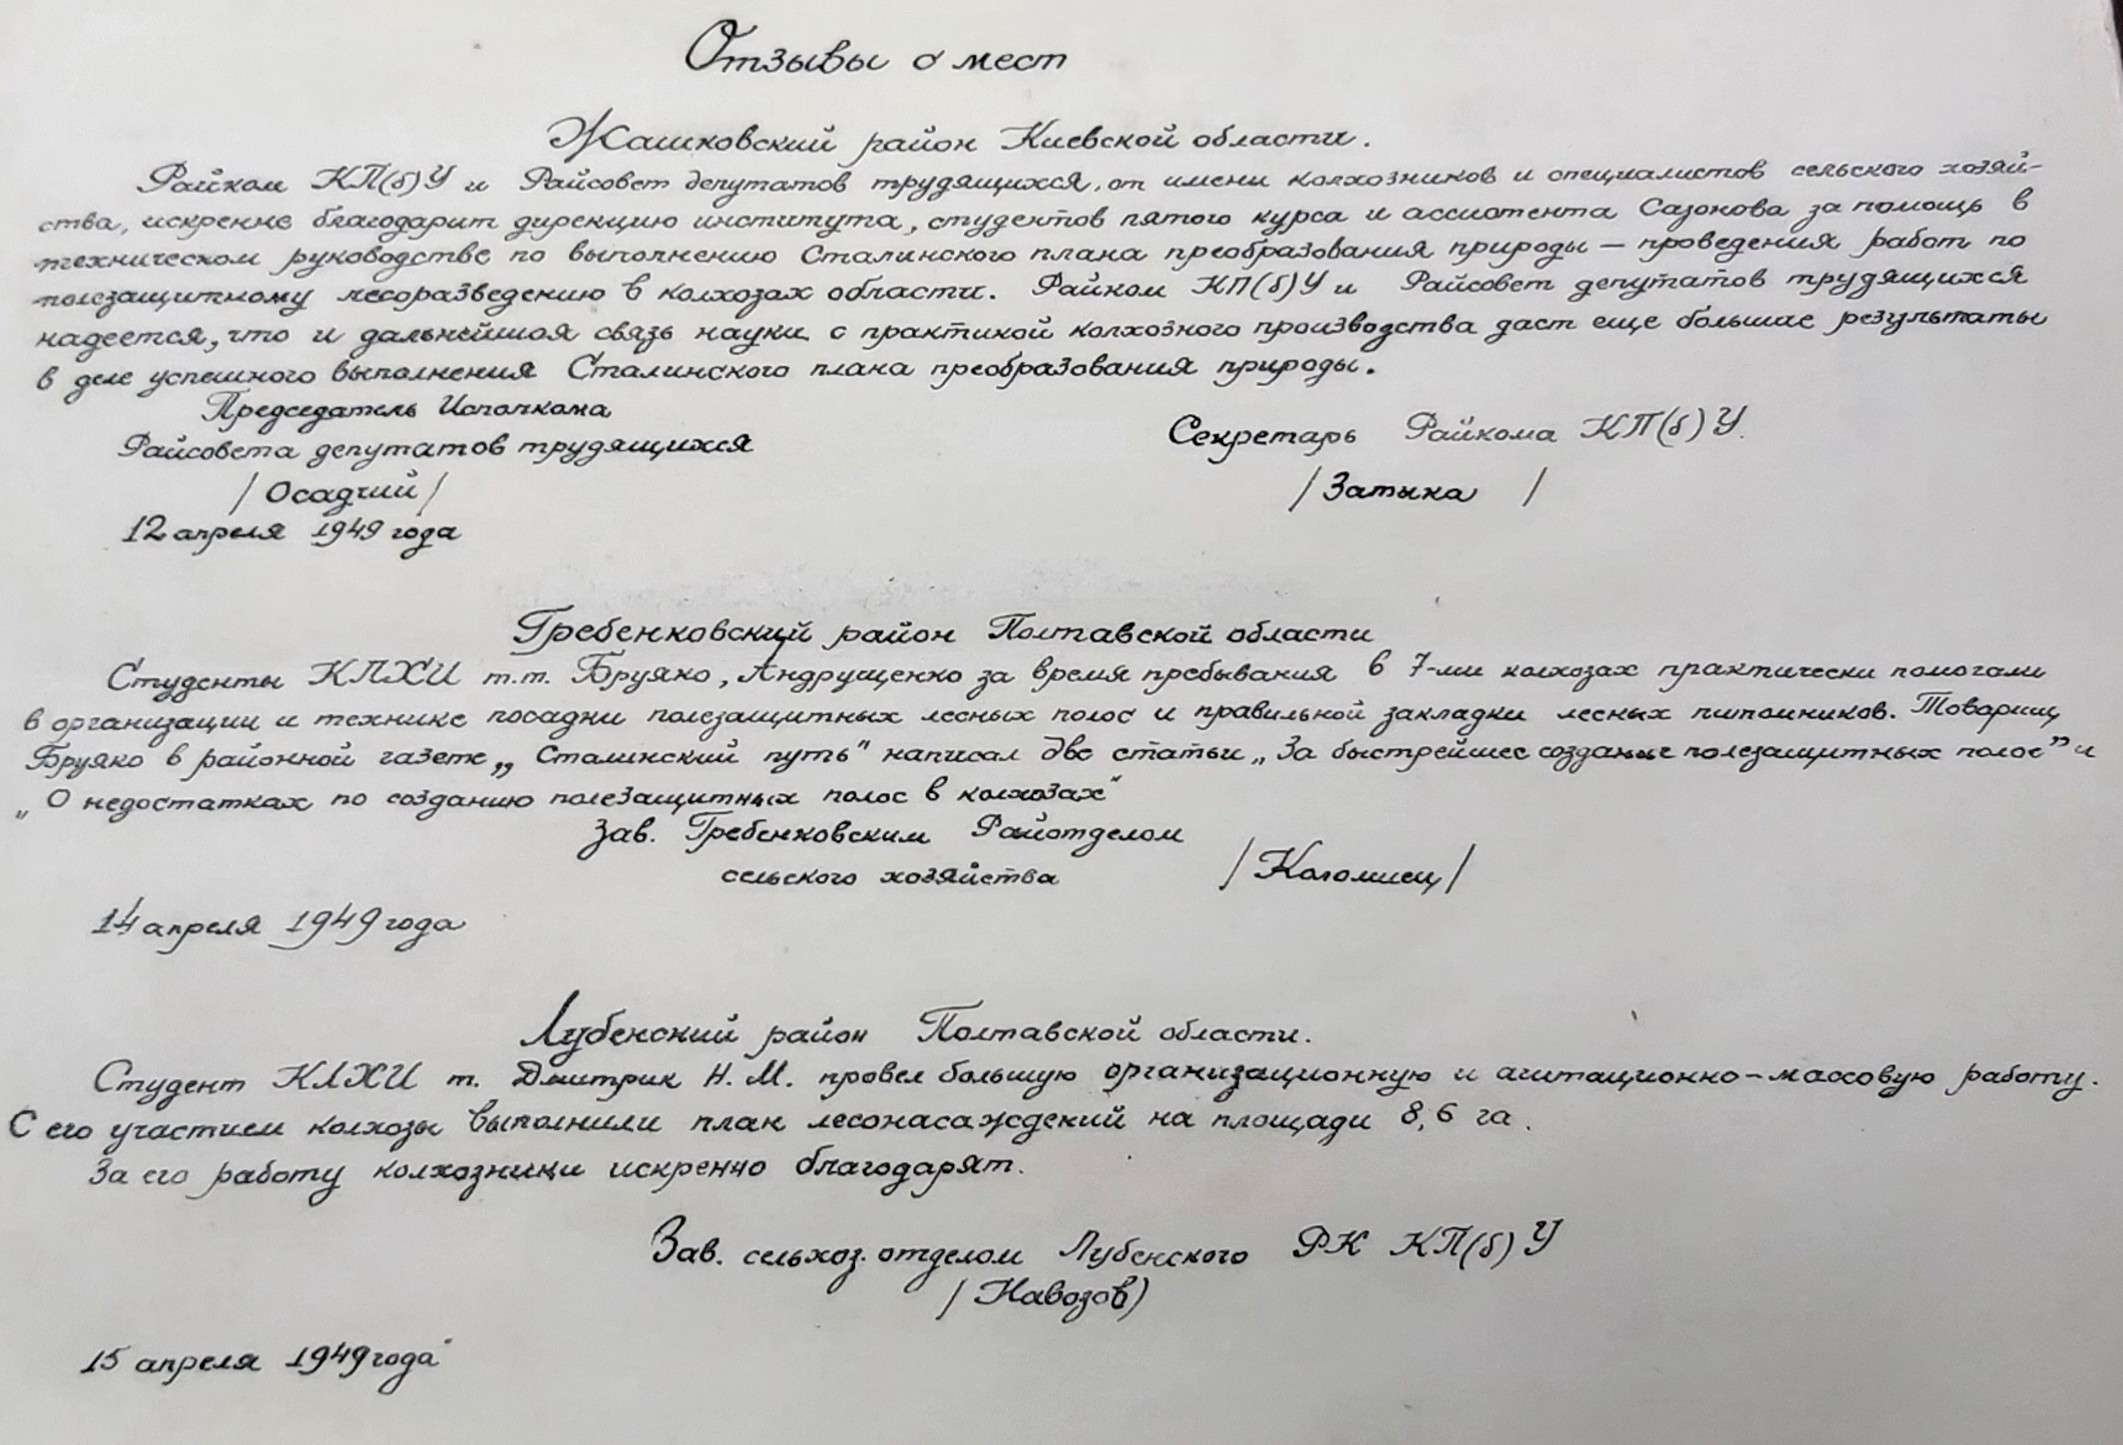 Отзывы с мест
Жашковский район Киевской области.
Райком КП(б)У и Райсовет депутатов трудящихся, от имени колхозников и специалистов сельского хозяй-
ства, искренне благодарит дирекцию института, студентов пятого курса и ассистента Сазонова за помощь в
техническом руководстве по выполнению Сталинского плана преобразования природы — проведения работ по
полезащитному лесоразведению в колхозах области. Райком КП(б)У и Райсовет депутатов трудящихся
надеется, что и дальнейшая связь науки с практикой колхозного производства даст еще большие результаты
в деле успешного выполнения Сталинского плана преобразования природы.
Председатель Исполкома
Райсовета депутатов трудящихся
/ Осадчий /
Секретарь Райкома КП(б)У.
/ Затыка /
12 апреля 1949 года
Гребенковский район Полтавской области
Студенты КЛХИ т.т. Бруяко, Андрущенко за время пребывания в 7-ми колхозах практически помогали
в организации и технике посадки полезащитных лесных полос и правильной закладки лесных питомников. Товарищ
Бруяко в районной газете „Сталинский путь" написал две статьи „За быстрейшее создание полезащитных полос" и
„О недостатках по созданию полезащитных полос в колхозах"
Зав. Гребенковским Райотделом
сельского хозяйства /Коломиец/
14 апреля 1949 года
Лубенский район Полтавской области.
Студент КЛХИ т. Дмитрик Н. М. провел большую организационную и агитационно-массовую работу.
С его участием колхозы выполнили план лесонасаждений на площади 8,6 га.
За его работу колхозники искренно благодарят.
Зав. сельхоз. отделом Лубенского РК КП(б)У
/ Навозов)
15 апреля 1949 года